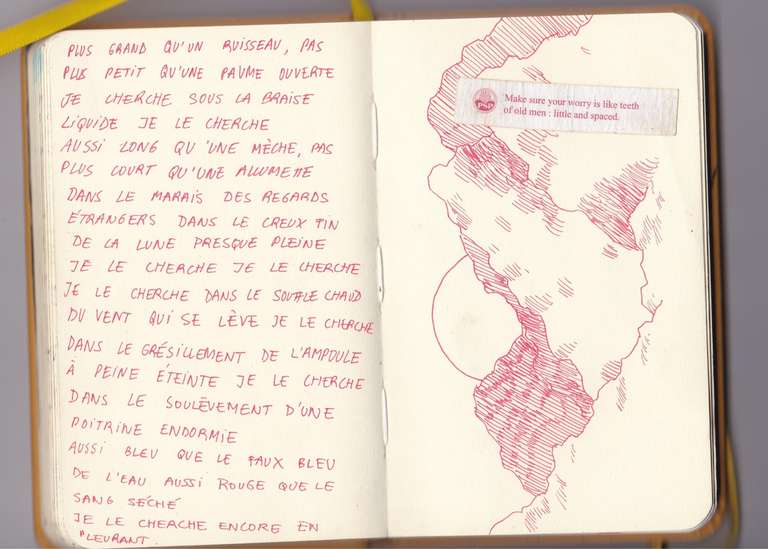 PLUS GRAND QU'UN RUISSEAU, PAS
PLUS PETIT QU'UNE PAUME OUVERTE
JE CHERCHE SOUS LA BRAISE
LIQUIDE JE LE CHERCHE
AUSSI LONG QU'UNE MÈCHE, PAS
PLUS COURT QU'UNE ALLUMETTE
DANS LE MARAIS DES REGARDS
ÉTRANGERS DANS LE CREUX FIN
DE LA LUNE PRESQUE PLEINE
JE LE CHERCHE JE LE CHERCHE
JE LE CHERCHE DANS LE SOUFFLE CHAUD
DU VENT QUI SE LÈVE JE LE CHERCHE
DANS LE GRÉSILLEMENT DE L'AMPOULE
À PEINE ÉTEINTE JE LE CHERCHE
DANS LE SOULÈVEMENT D'UNE
POITRINE ENDORMIE
AUSSI BLEU QUE LE FAUX BLEU
DE L'EAU AUSSI ROUGE QUE LE
SANG SÉCHÉ
JE LE CHERCHE ENCORE EN
PLEURANT.
PSP
Make sure your worry is like teeth
of old men ; little and spaced.